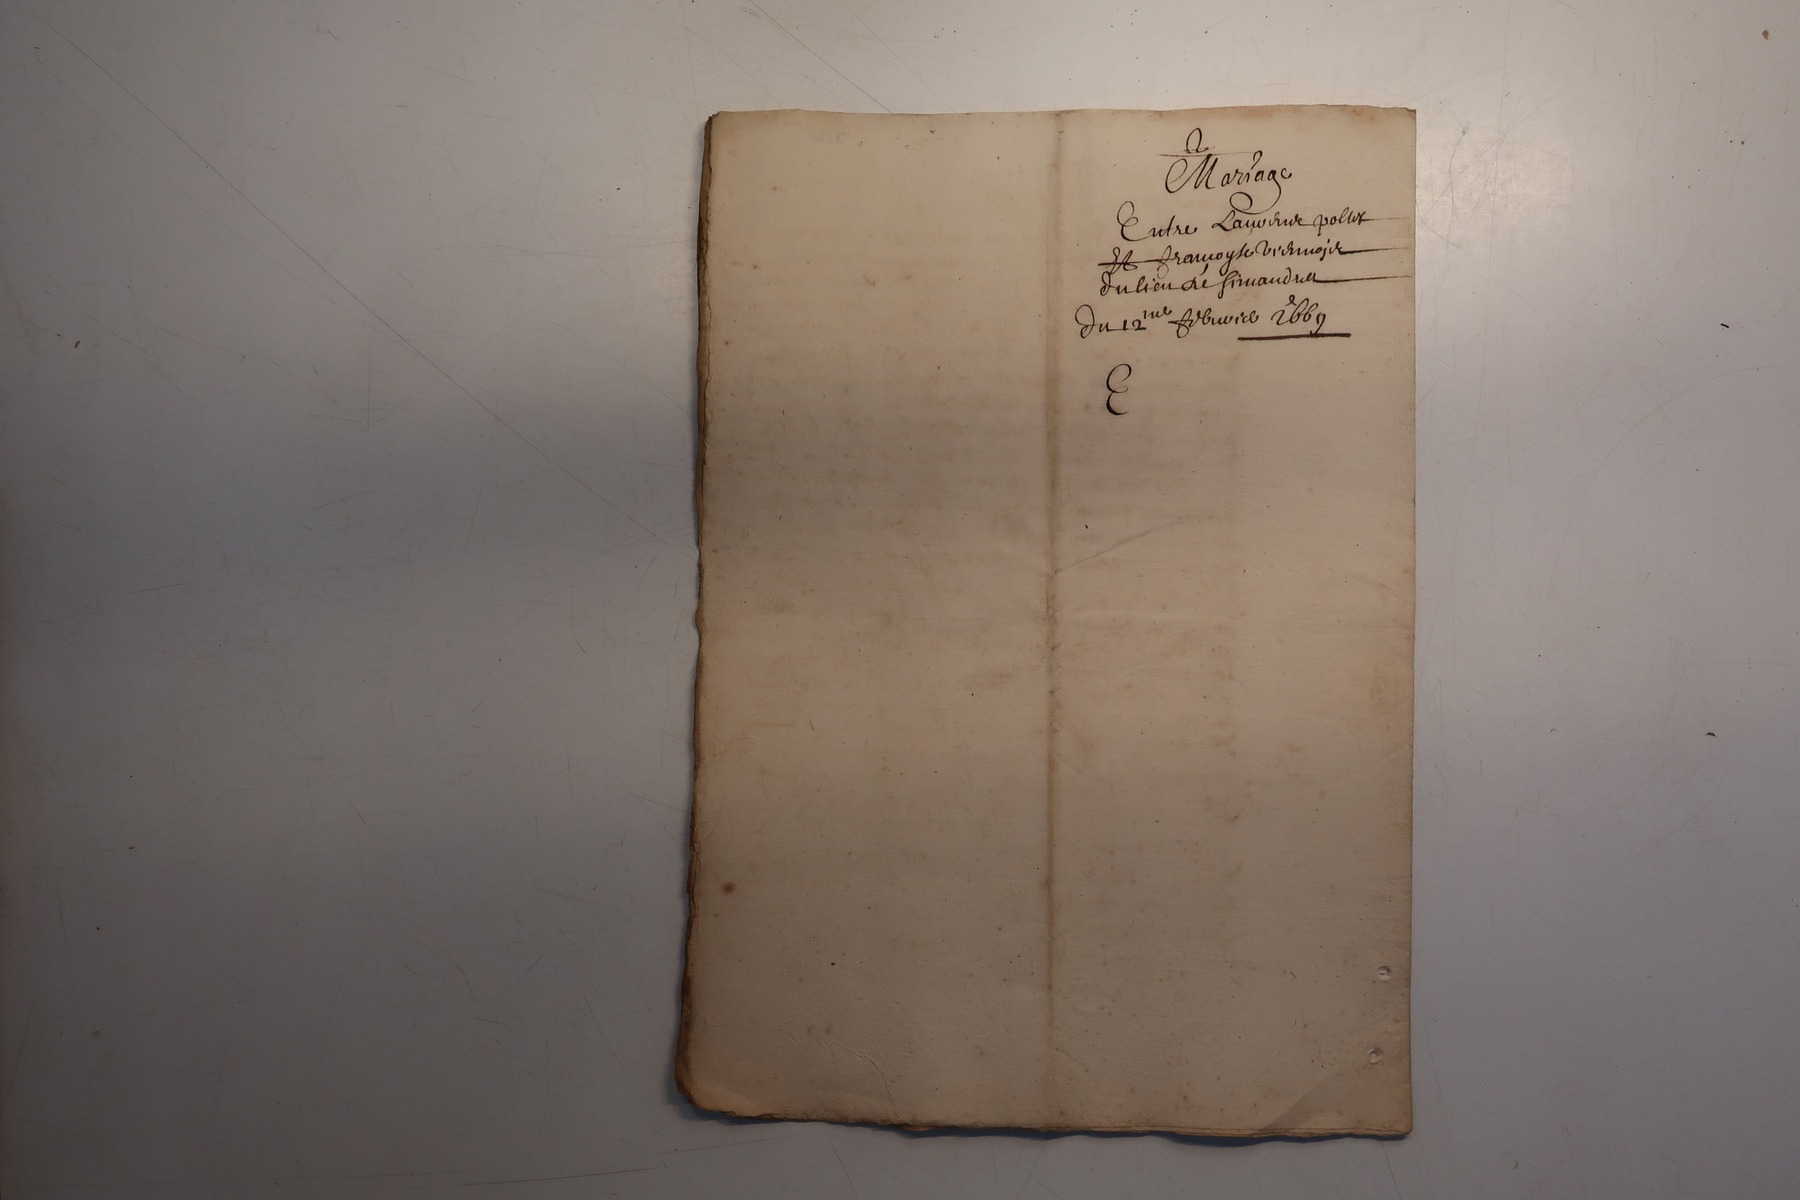 Mariage
Entre Lauvence pollet
Et francoyse
du lieu de simandres
du 12me febvrier 1669
E